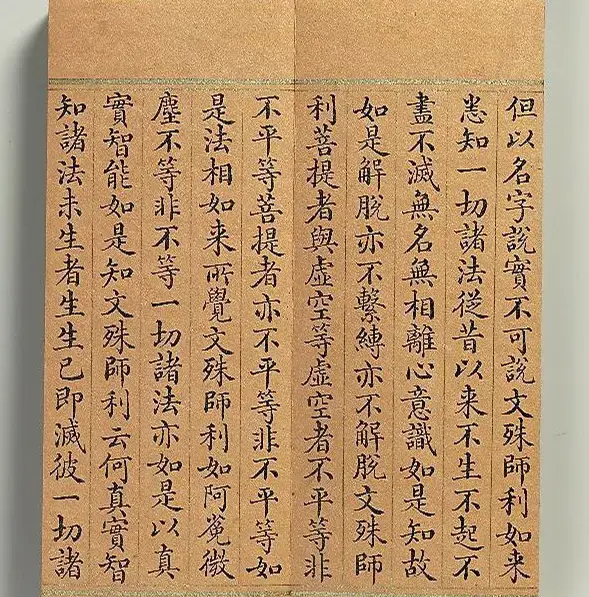 但以名字說實不可說文殊師利如来
悉知一切諸法從昔以来不生不起不
盡不滅無名無相離心意識如是知故
如是解脫亦不繫縛亦不解脫文殊師
利菩提者與虛空等虛空者不平等非
不平等菩提者亦不平等非不平等如
是法相如来所覺文殊師利如阿㝹微
塵不等非不等一切諸法亦如是以真
實智能如是知文殊師利云何真實智
知諸法未生者生生已即滅彼一切諸